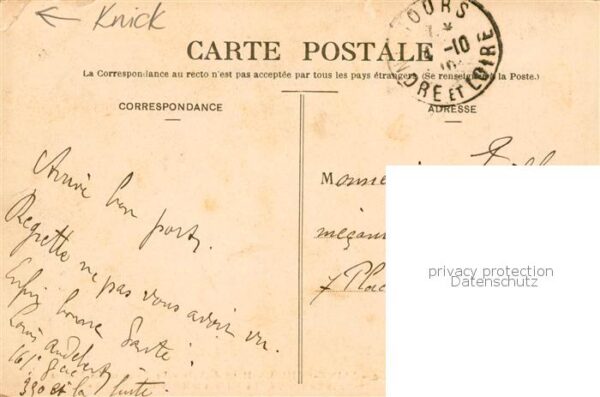 ← Knick
TOURS
10
INDRE ET LOIRE
CARTE POSTALE
La Correspondance au recto n'est pas acceptée par tous les pays étrangers (Se renseigner à la Poste.)
CORRESPONDANCE
ADRESSE
Arrivé bon port.
Regrette ne pas vous avoir vu.
Enfin bonne Santé !
Louis
161
330 et la suite.
Monsie
mécan
7 Plac
privacy protection
Datenschutz